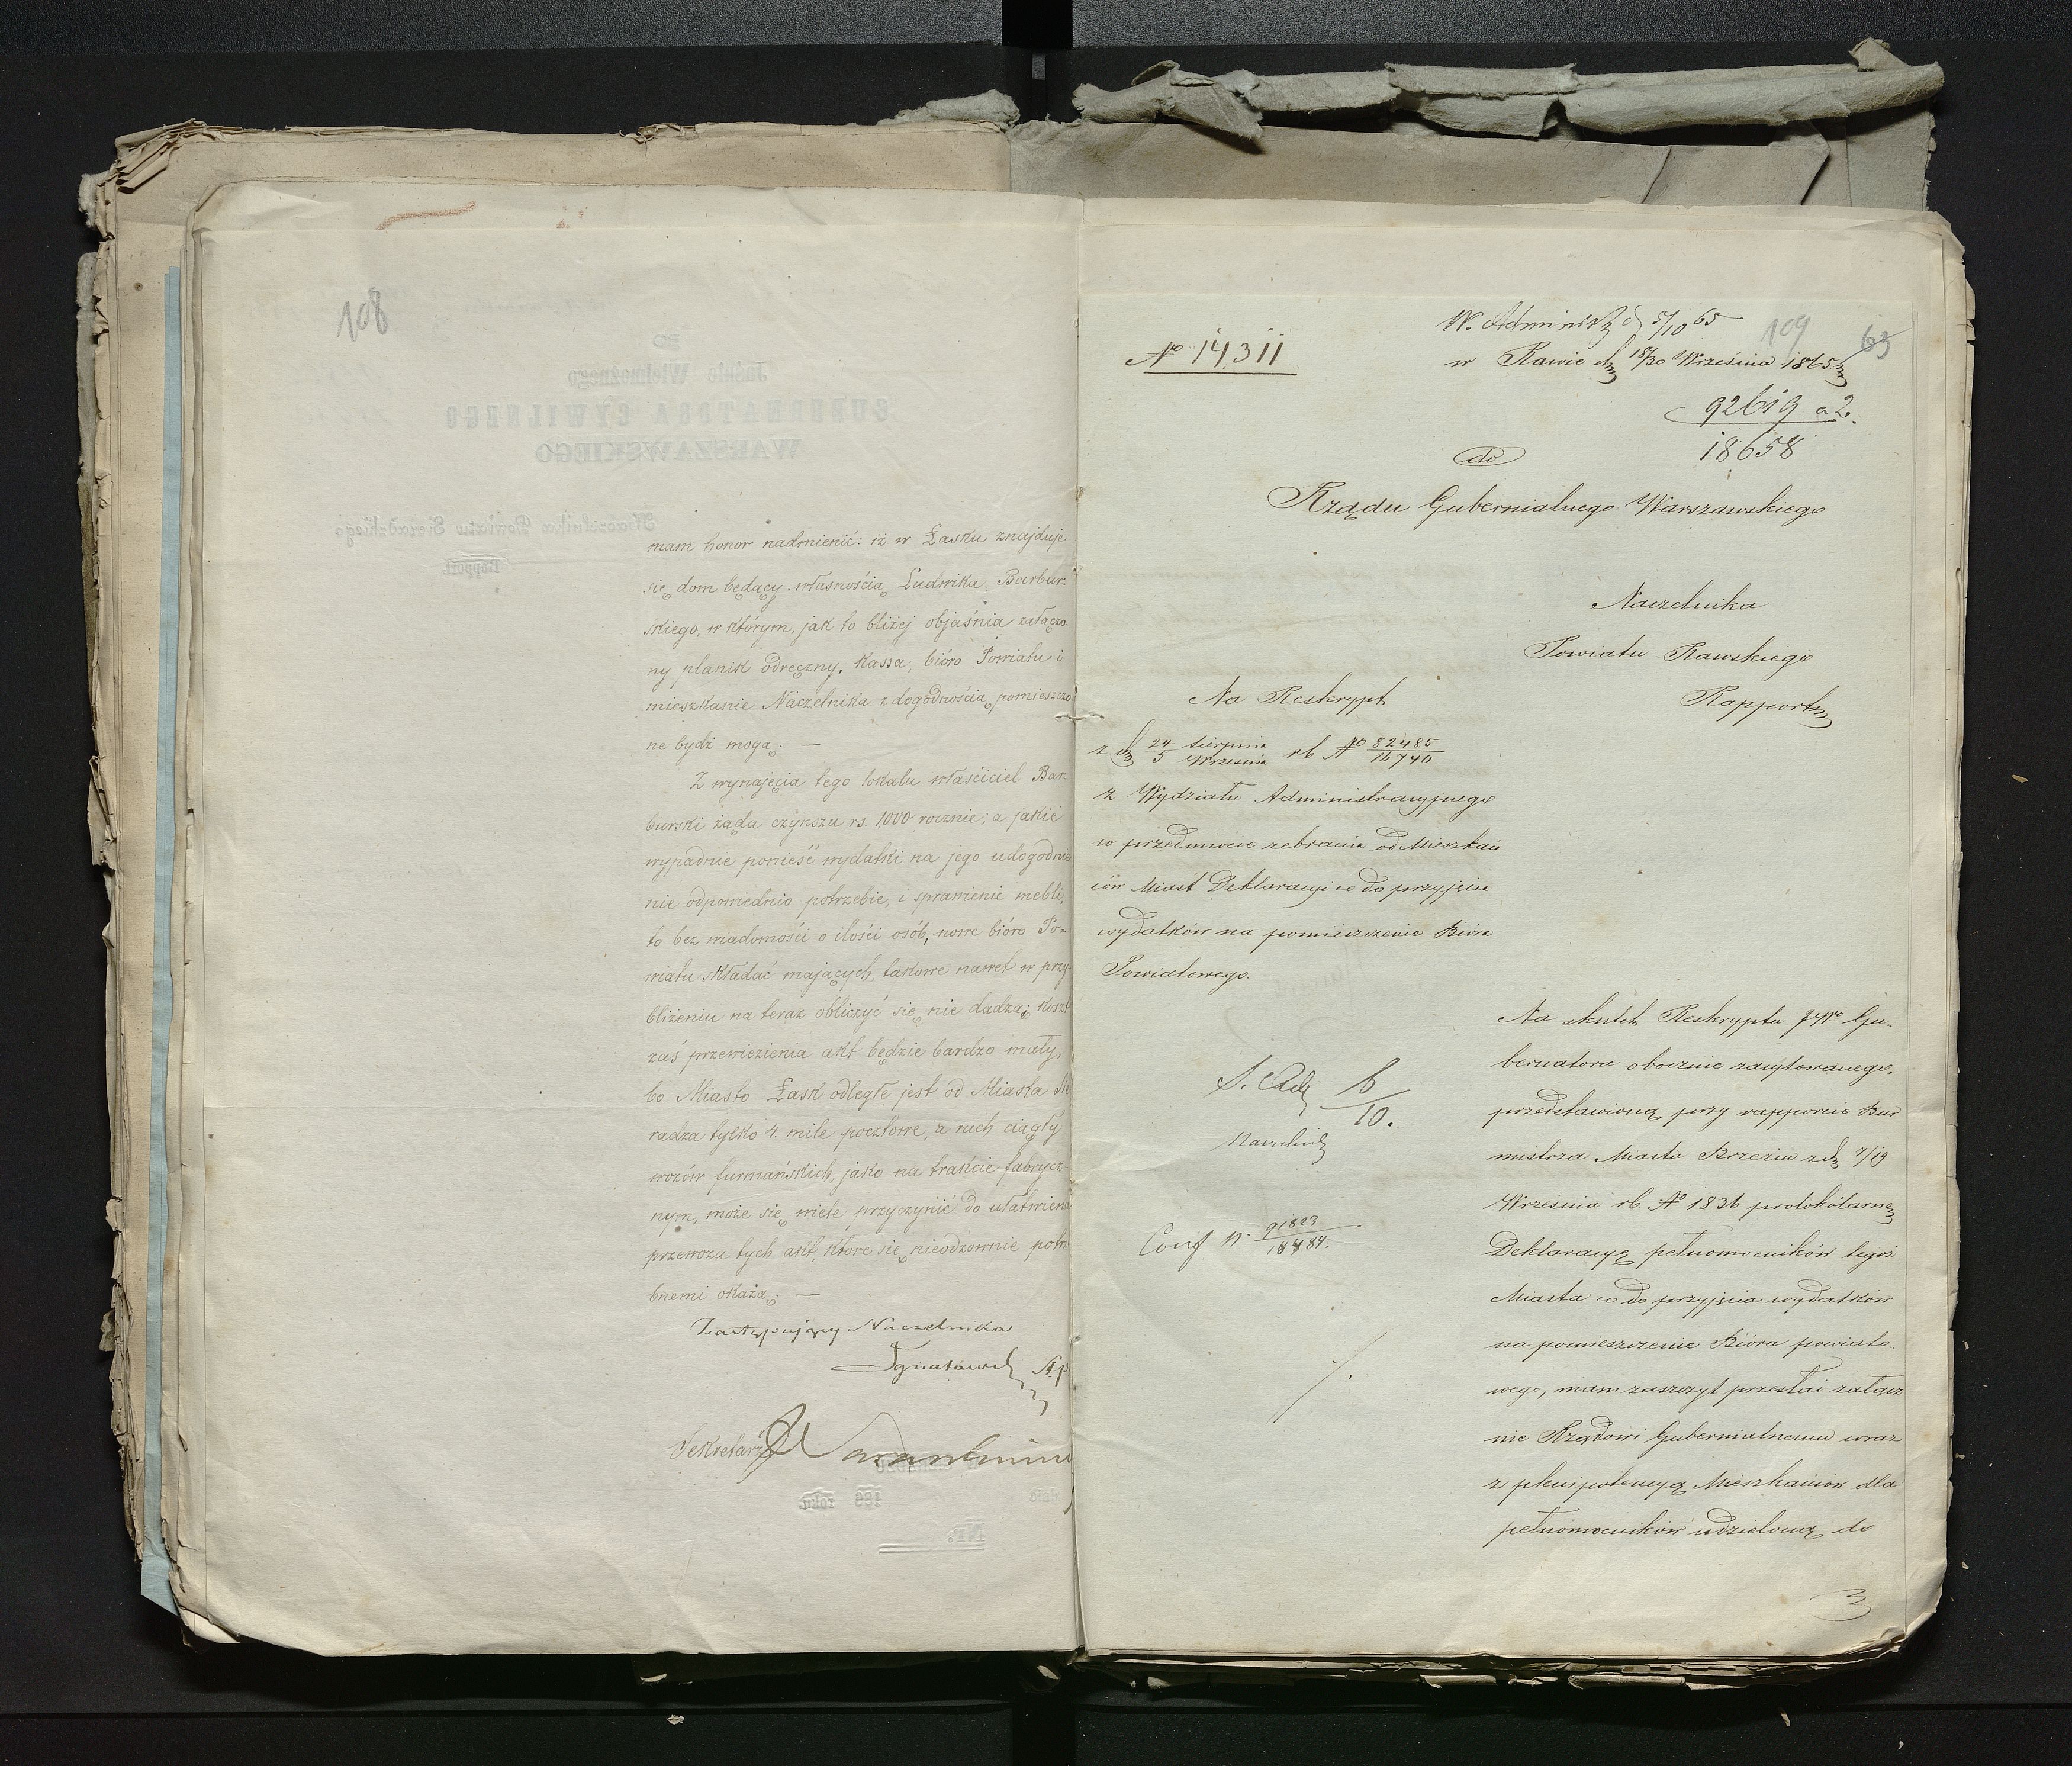 108
mam honor nadmienić: iż w Łasku znajduje
się dom będący własnością Ludwika Barbur-
skiego, w którym, jak to bliżej objaśnia załączo-
ny planik odręczny, Kassa, bióro Powiatu i
mieszkanie Naczelnika z dogodnością pomieszczo-
ne bydź mogą. —
Z wynajęcia tego lokalu właściciel Bar-
burski żąda czynszu rs. 1,000 rocznie; a jakie
wypadnie ponieść wydatki na jego udogodnie
nie odpowiednio potrzebie, i sprawienie mebli,
to bez wiadomości o ilości osób, nowe bióro Po-
wiatu składać mających, takowe nawet w przy-
bliżeniu na teraz obliczyć się nie dadzą; koszt
zaś przewiezienia akt będzie bardzo mały,
bo Miasto Łask odległe jest od Miasta Sie
radza tylko 4. mile pocztowe, a ruch ciągły
wozów furmańskich, jako na trakcie fabrycz-
nym, może się wiele przyczynić do ułatwienia
przewozu tych akt, które się nieodzownie potrze
bnemi okażą. —
Zastępujący Naczelnika
Sekretarz
109
63
W. Administ d 5/10 65
No 14311
w Rawie d 18/30 Września 1865
92619 a2.
18658
do
Rządu Gubernialnego Warszawskiego
Naczelnika
Powiatu Rawskiego
Rapport
Na Reskrypt
z d 24 Sierpnia / 5 Września rb No 82485 / 16740
z Wydziału Administracyjnego
w przedmiocie zebrania od Mieszkań
ców Miast Deklaracyi co do przyjęcia
wydatków na pomieszczenie Biura
Powiatowego.
Na skutek Reskryptu JW Gu-
bernatora obocznie zacytowanego,
przedstawioną przy rapporcie Bur
mistrza Miasta Brzezin z d 7/19
Września rb. No 1836 protokólarną
Deklaracyę pełnomocników tegoż
Miasta co do przyjęcia wydatków
na pomieszczenie Bióra powiato-
wego, mam zaszczyt przesłać załącz
nie Rządowi Gubernialnemu wraz
z plenipotencyą Mieszkańców dla
pełnomocników udzieloną do
6/10.
Conf N. 91823 / 18484.